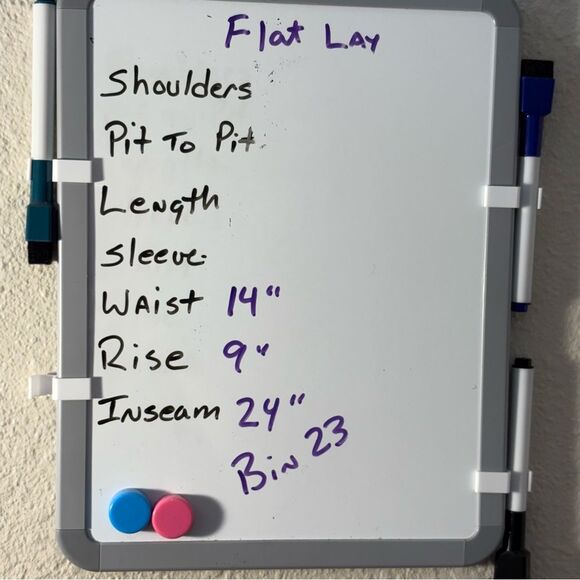 Flat Lay
Shoulders
Pit To Pit
Length
Sleeve
Waist 14"
Rise 9"
Inseam 24"
Bin 23